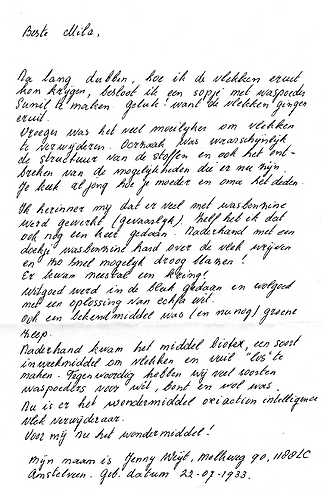 Beste Mila,
Na lang dubben, hoe ik de vlekken eruit
kon krygen, besloot ik een sopje met waspoeder
Sunil te maken geluk! want de vlekken gingen
eruit.
Vroeger was het veel moeilyker om vlekken
te verwyderen. Oorzaak was waarschynlyk
de structuur van de stoffen en ook het ont-
breken van de mogelykheden die er nu zyn.
Je keek al jong hoe je moeder en oma het deden.
Ik herinner my dat er veel met wasbenzine
werd gewerkt (gevaarlyk). Zelf heb ik dat
ook nog een keer gedaan. Naderhand met een
doekje wasbenzine hard over de vlek wryven
en zo snel mogelyk droog blazen!
Er kwam meestal een kring!
Witgoed werd in de bleek gedaan en wolgoed
met een oplossing van echfa wit.
Ook een bekend middel was (en nu nog) groene
zeep.
Naderhand kwam het middel Biotex, een soort
inweekmiddel om vlekken en vuil "los" te
maken. Tegenwoordig hebben wy veel soorten
waspoeders voor wit, bont en wol was.
Nu is er het wondermiddel oxi action intelligence
vlek verwyderaar.
Voor my nu het wondermiddel!
Myn naam is Jenny 90, 1188LC
Amstelveen. Geb. datum 22-07-1933.